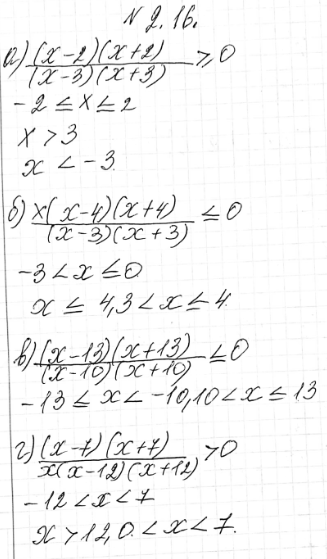 № 2.16.
а) (x-2)(x+2)/(x-3)(x+3) ≥ 0
-2 ≤ x ≤ 2
x > 3
x < -3
б) x(x-4)(x+4)/(x-3)(x+3) ≤ 0
-3 < x ≤ 0
x ≤ 4, 3 < x ≤ 4
в) (x-13)(x+13)/(x-10)(x+10) ≤ 0
-13 ≤ x < -10, 10 < x ≤ 13
г) (x-7)(x+7)/x(x-12)(x+12) > 0
-12 < x < 7
x > 12, 0 < x < 7.